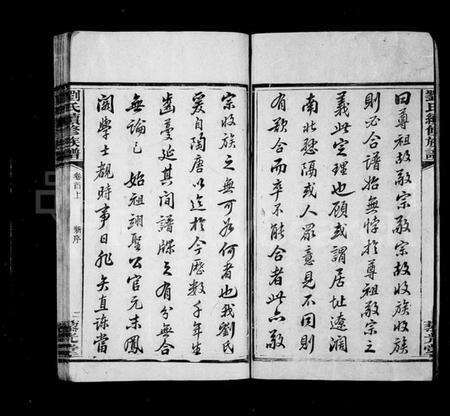 曰尊祖故敬宗敬宗故收族收族
則必合譜始無悖於尊祖敬宗之
義此定理也顧或謂居址遼濶
南北懸隔或人眾意見不同則
有欲合而卒不能合者此亦敬
宗收族之無可如何者也我劉氏
爰自陶唐以迄於今歷數千年生
齒蔓延其間譜牒之有分無合
無論已 始祖翊聖公官元末鳳
閣學士覩時事日非矢直諫當
劉氏續修族譜
卷首上
新序
二
劉氏續修族譜